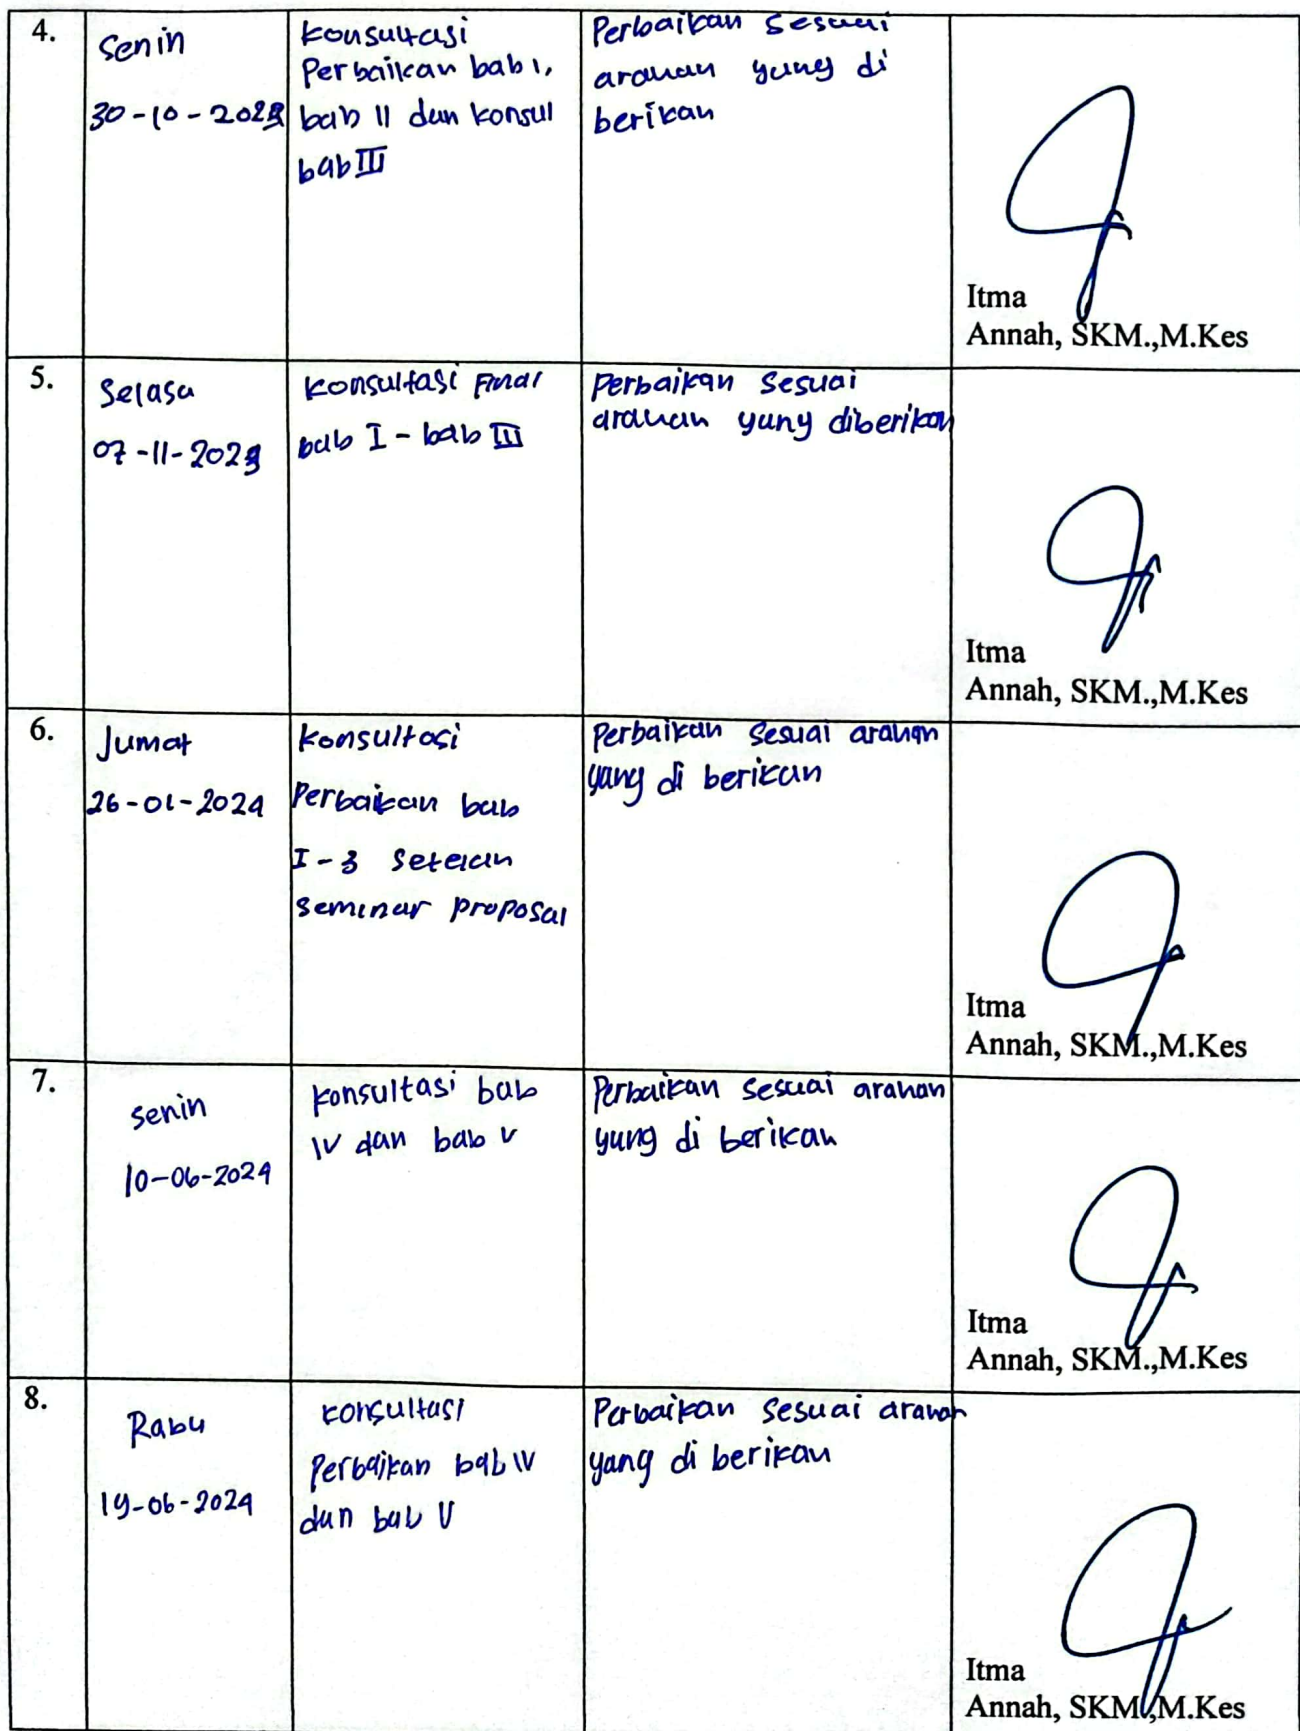 4.
Senin
30-10-2023
Konsultasi
Perbaikan bab 1,
bab II dan konsul
bab III
Perbaikan sesuai
arahan yang di
berikan
Itma
Annah, SKM.,M.Kes
5.
Selasa
07-11-2023
Konsultasi Final
bab I - bab III
Perbaikan Sesuai
arahan yang diberikan
Itma
Annah, SKM.,M.Kes
6.
Jumat
26-01-2024
Konsultasi
Perbaikan bab
I-3 Setelah
seminar proposal
Perbaikan Sesuai arahan
yang di berikan
Itma
Annah, SKM.,M.Kes
7.
senin
10-06-2024
Konsultasi bab
IV dan bab V
Perbaikan Sesuai arahan
yang di berikan
Itma
Annah, SKM.,M.Kes
8.
Rabu
19-06-2024
Konsultasi
Perbaikan bab IV
dan bab V
Perbaikan Sesuai arahan
yang di berikan
Itma
Annah, SKM.,M.Kes